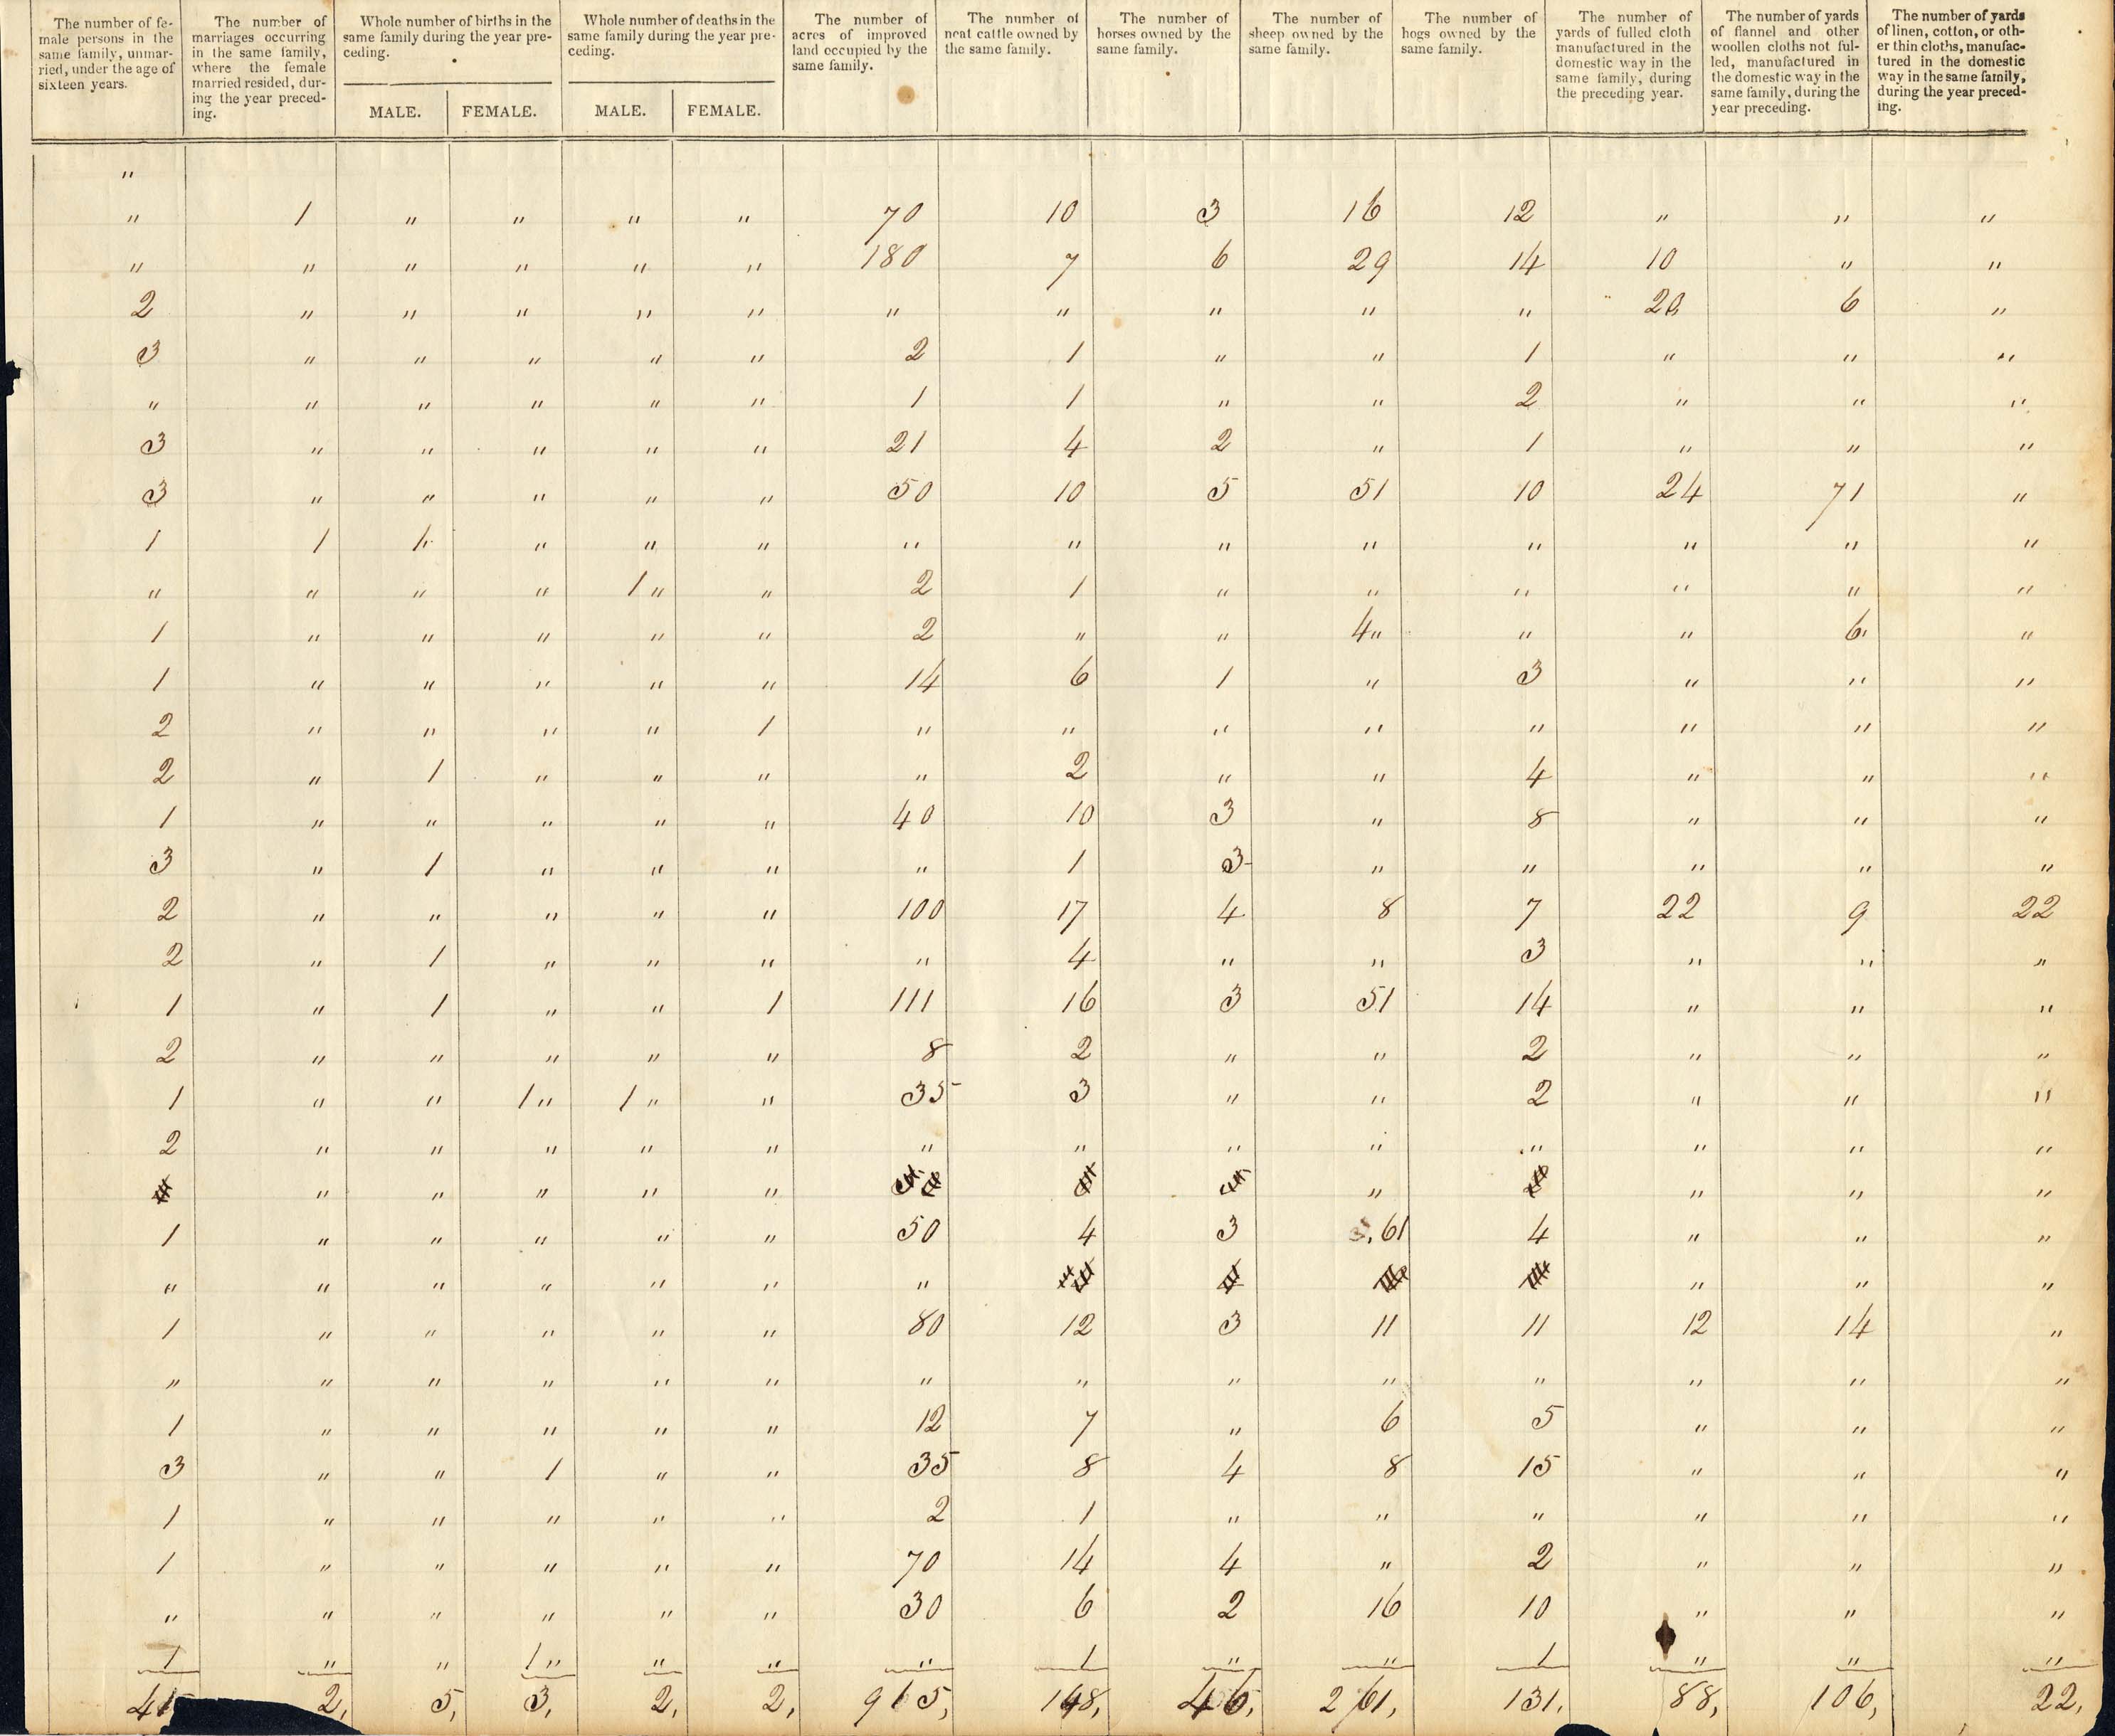 The number of fe-
male persons in the
same family, unmar-
ried, under the age of
sixteen years.
The number of
marriages occurring
in the same family,
where the female
married resided, dur-
ing the year preced-
ing.
Whole number of births in the
same family during the year pre-
ceding.
MALE. FEMALE.
Whole number of deaths in the
same family during the year pre-
ceding.
MALE. FEMALE.
The number of
acres of improved
land occupied by the
same family.
The number of
neat cattle owned by
the same family.
The number of
horses owned by the
same family.
The number of
sheep owned by the
same family.
The number of
hogs owned by the
same family.
The number of
yards of fulled cloth
manufactured in the
domestic way in the
same family, during
the preceding year.
The number of yards
of flannel and other
woollen cloths not ful-
led, manufactured in
the domestic way in the
same family, during the
year preceding.
The number of yards
of linen, cotton, or oth-
er thin cloths, manufac-
tured in the domestic
way in the same family,
during the year preced-
ing.
"
" 1 " " " " 70 10 3 16 12 " " "
" " " " " " 180 7 6 29 14 10 " "
2 " " " " " " " " " " 6 "
3 " " " " " 2 1 " " 1 " " "
" " " " " " 1 1 " " 2 " " "
3 " " " " " 21 4 2 " 1 " " "
3 " " " " " 50 10 5 51 10 24 71 "
1 1 1" " " " " " " " " " " "
" " " " 1 " " 2 1 " " " " " "
1 " " " " " 2 " " 4" " " 6" "
1 " " " " " 14 6 1 " 3 " " "
2 " " " " 1 " " " " " " " "
2 " 1 " " " " 2 " " 4 " " "
1 " " " " " 40 10 3 " 8 " " "
3 " 1 " " " " 1 3 " " " " "
2 " " " " " 100 17 4 8 7 22 9 22
2 " 1 " " " " 4 " " 3 " " "
1 " 1 " " 1 111 16 3 51 14 " " "
2 " " " " " 8 2 " " 2 " " "
1 " " 1 " 1 " " 35 3 " " 2 " " "
2 " " " " " " " " " " " " "
" " " " " " " " "
1 " " " " " 50 4 3 61 4 " " "
" " " " " " " " " "
1 " " " " " 80 12 3 11 11 12 14 "
" " " " " " " " " " " " " "
1 " " " " " 12 7 " 6 5 " " "
3 " " 1 " " 35 8 4 8 15 " " "
1 " " " " " 2 1 " " " " " "
1 " " " " " 70 14 4 " 2 " " "
" " " " " " 30 6 2 16 10 " " "
1 " " 1 " " " " 1 " " 1 " " "
2, 5, 3, 2, 2, 915, 148, 46, 261, 131, 88, 106, 22,